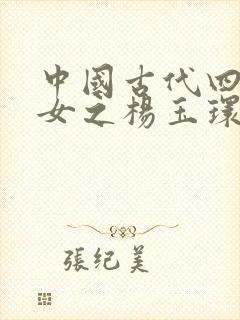 中國古代四
女之楊玉環
張纪美